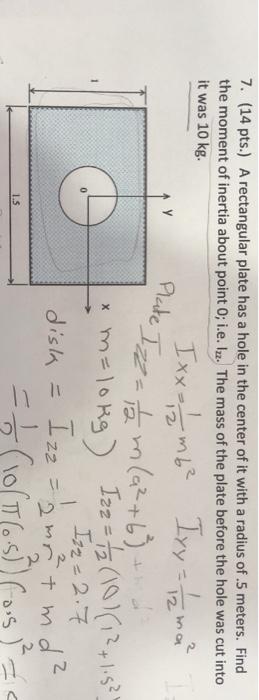 7. (14 pts.) A rectangular plate has a hole in the center of it with a radius of .5 meters. Find
the moment of inertia about point 0; i.e. Izz. The mass of the plate before the hole was cut into
it was 10 kg.
Ixx = 1/12 mb² Iyy = 1/12 ma²
Plate Izz = 1/12 m(a²+b²)
m = 10 kg) Izz = 1/12 (10)(1²+1.5²)
Izz = 2.7
disk = Izz = 1/2 mr² + md²
= 1/2 (10(π(0.5)²)(0.5)²
Y
x
0
1
1.5